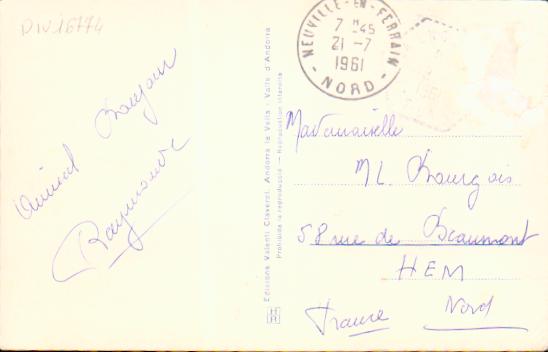 DIV16774
NEUVILLE-EN-FERRAIN
7 H 45
21-7
1961
NORD
1961
Amical Bonjour
Raymonde
Edicions Valentí Claverol. Andorra la Vella - Valls d'Andorra
Prohibida la reproducció - Reproduction interdite
Mademoiselle
ML Bourgois
58 rue de Beaumont
HEM
France Nord